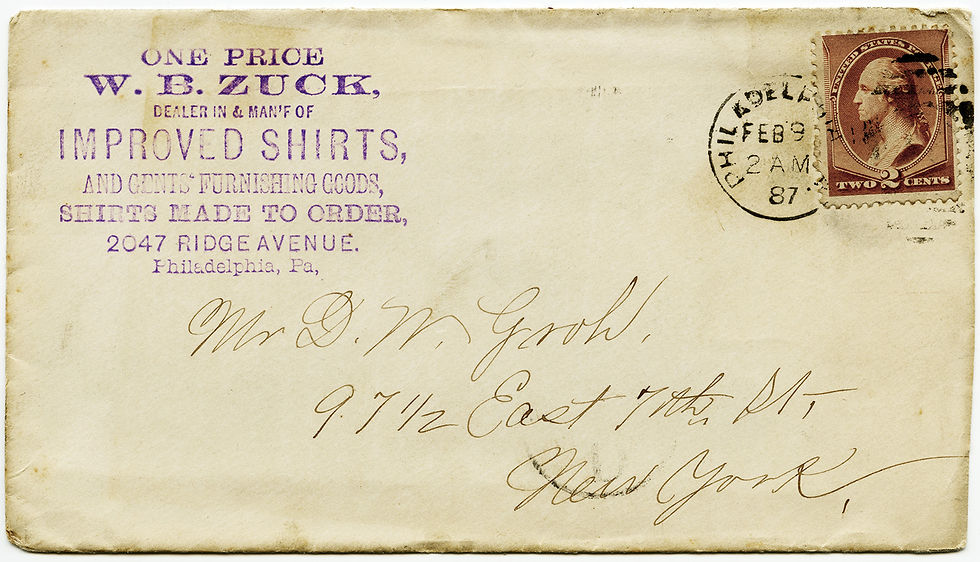 ONE PRICE
W. B. ZUCK,
DEALER IN & MAN'F OF
IMPROVED SHIRTS,
AND GENTS' FURNISHING GOODS,
SHIRTS MADE TO ORDER,
2047 RIDGE AVENUE.
Philadelphia, Pa,
UNITED STATES
TWO 2 CENTS
PHILADELPHIA
FEB 9
2 AM
87
Mr D. W. Groh.
97 1/2 East 7th St,
New York,